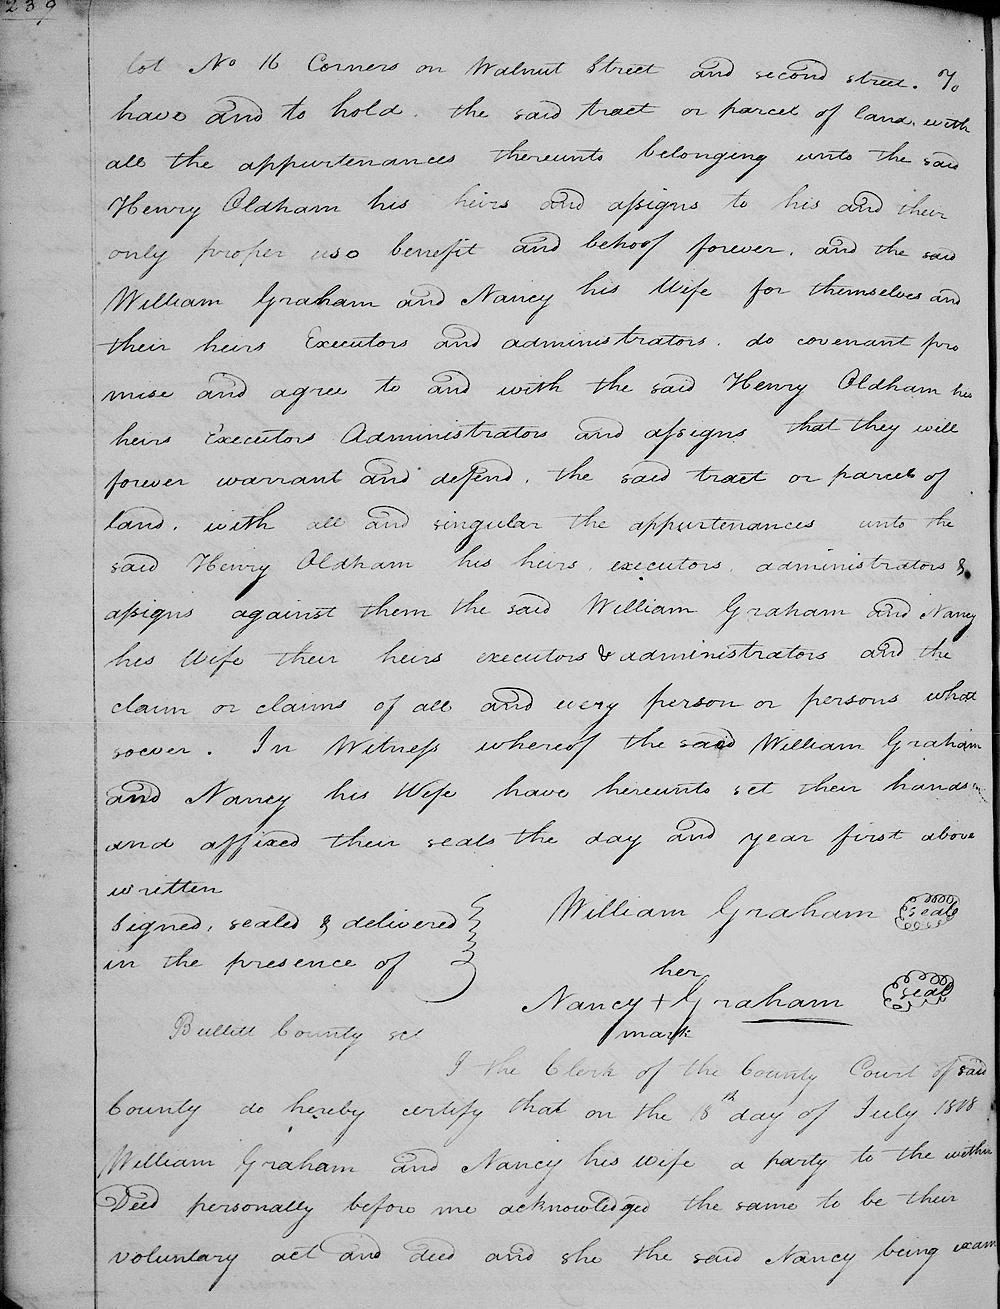 239
lot No 16 Corners on Walnut Street and second street. To
have and to hold. the said tract or parcel of land, with
all the appurtenances thereunto belonging unto the said
Henry Oldham his heirs and assigns to his and their
only proper use benefit and behoof forever. and the said
William Graham and Nancy his Wife for themselves and
their heirs Executors and administrators. do covenant pro
mise and agree to and with the said Henry Oldham his
heirs Executors Administrators and assigns that they will
forever warrant and defend. the said tract or parcel of
land. with all and singular the appurtenances unto the
said Henry Oldham his heirs. executors. administrators &
assigns against them the said William Graham and Nancy
his Wife their heirs executors & administrators and the
claim or claims of all and every person or persons what
soever. In Witness whereof the said William Graham
and Nancy his Wife have hereunto set their hands
and affixed their seals the day and year first above
written
Signed, sealed & delivered
in the presence of
William Graham seal
her
Nancy + Graham seal
mark
Bullitt County sct
I the Clerk of the County Court of said
County do hereby certify that on the 18th day of July 1808
William Graham and Nancy his wife a party to the within
Deed personally before me acknowledged the same to be their
voluntary act and deed and she the said Nancy being exam